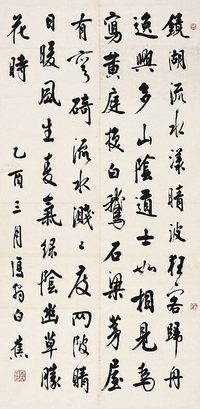 鏡湖流水漾晴波狂客歸舟
逸興多山陰道士如相見為
寫黃庭換白鵝石梁茅屋
有彎碕流水濺々度兩陂晴
日暖風生麥氣綠陰幽草勝
花時 乙酉三月復翁白蕉